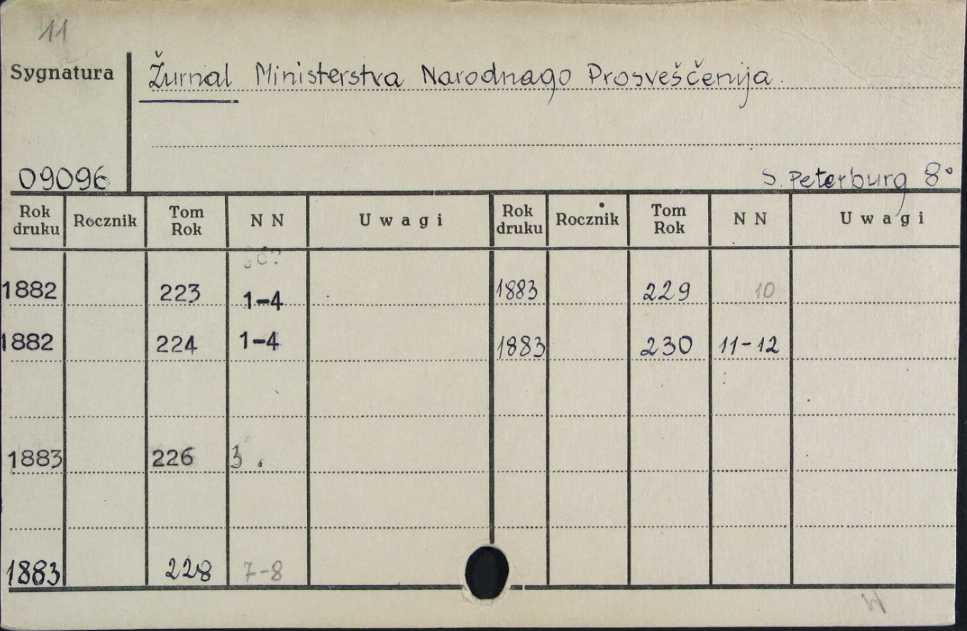 11
Sygnatura
Žurnal Ministerstva Narodnago Prosveščenija.
09096
S. Peterburg 8°
Rok druku Rocznik Tom Rok N N Uwagi Rok druku Rocznik Tom Rok N N Uwagi
1882 223 1-4 1883 229 10
1882 224 1-4 1883 230 11-12
1883 226 3.
1883 228 7-8
W